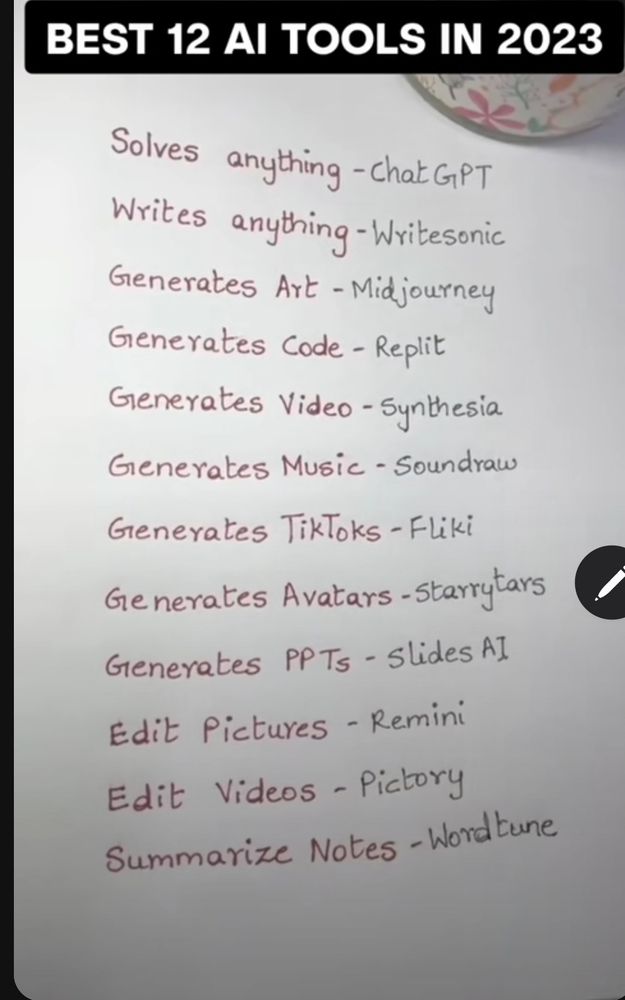 BEST 12 AI TOOLS IN 2023
Solves anything - ChatGPT
Writes anything - Writesonic
Generates Art - Midjourney
Generates Code - Replit
Generates Video - Synthesia
Generates Music - Soundraw
Generates TikToks - Fliki
Generates Avatars - Starrytars
Generates PPTs - Slides AI
Edit Pictures - Remini
Edit Videos - Pictory
Summarize Notes - Wordtune